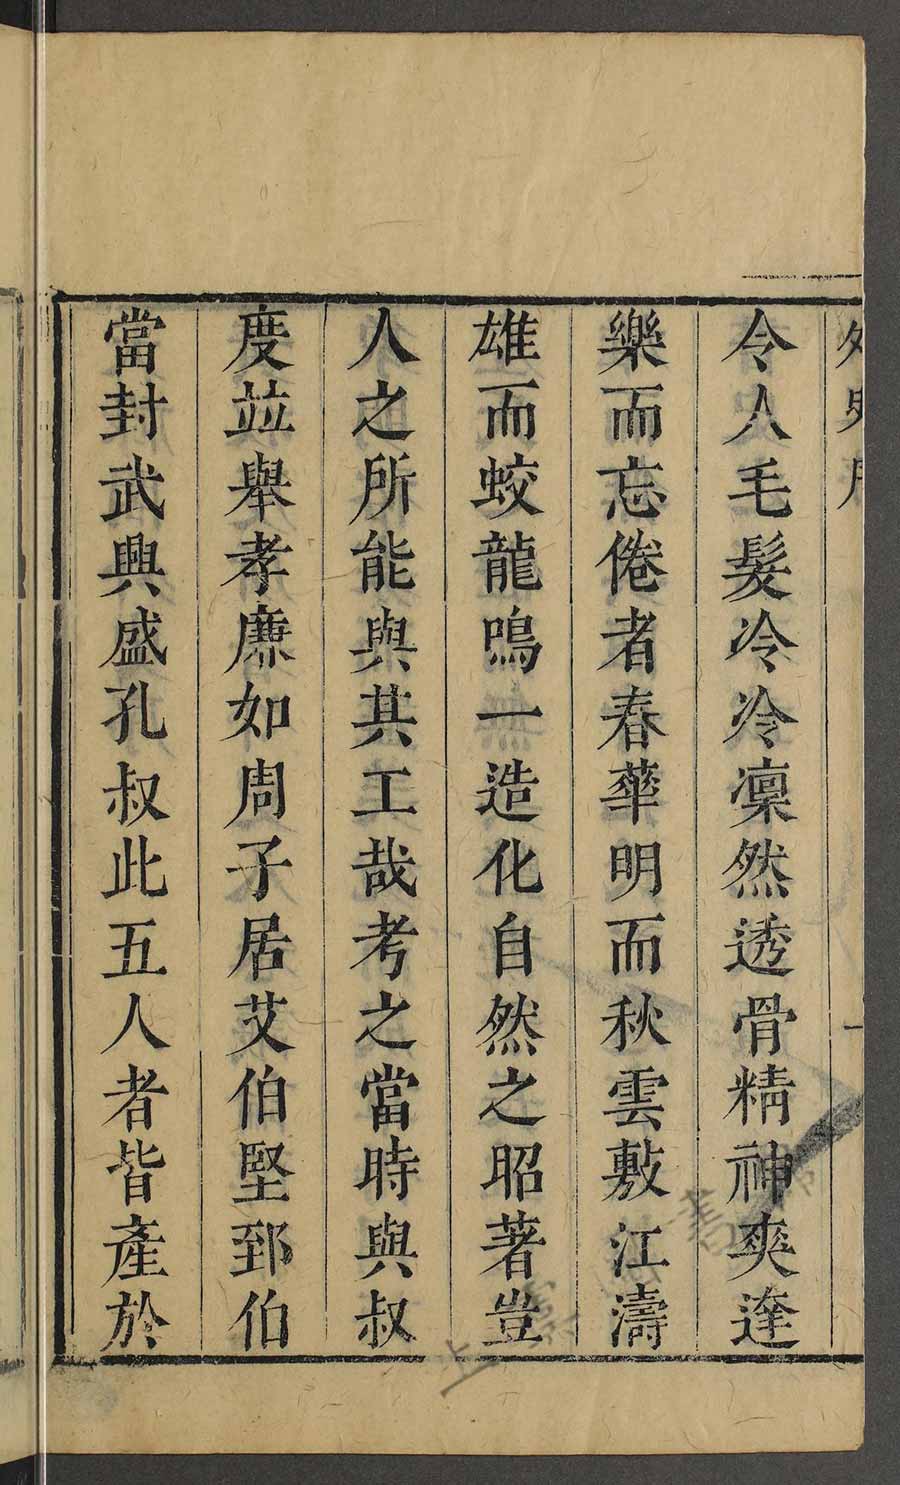 令人毛髮冷冷凜然透骨精神爽逹
樂而忘倦者春華明而秋雲敷江濤
雄而蛟龍鳴一造化自然之昭著豈
人之所能與其工哉考之當時與叔
度並舉孝廉如周子居艾伯堅郅伯
當封武興盛孔叔此五人者皆產於